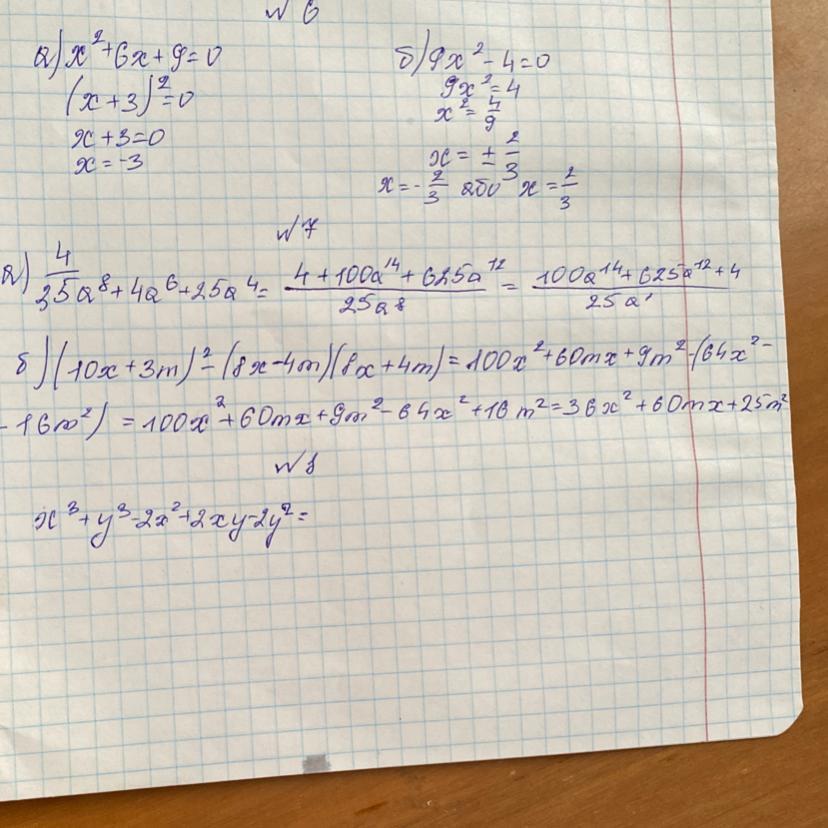 № 6
а) x²+6x+9=0
(x+3)²=0
x+3=0
x=-3
б) 9x²-4=0
9x²=4
x²=4/9
x=±2/3
x=-2/3 або x=2/3
№7
а) 4/25a⁸+4a⁶+25a⁴= (4+100a¹⁴+625a¹²)/25a⁸ = (100a¹⁴+625a¹²+4)/25a⁸
б) (10x+3m)²-(8x-4m)(8x+4m)=100x²+60mx+9m²-(64x²-
-16m²) =100x²+60mx+9m²-64x²+16m²=36x²+60mx+25m²
№8
x³+y³-2x²+2xy-2y²=